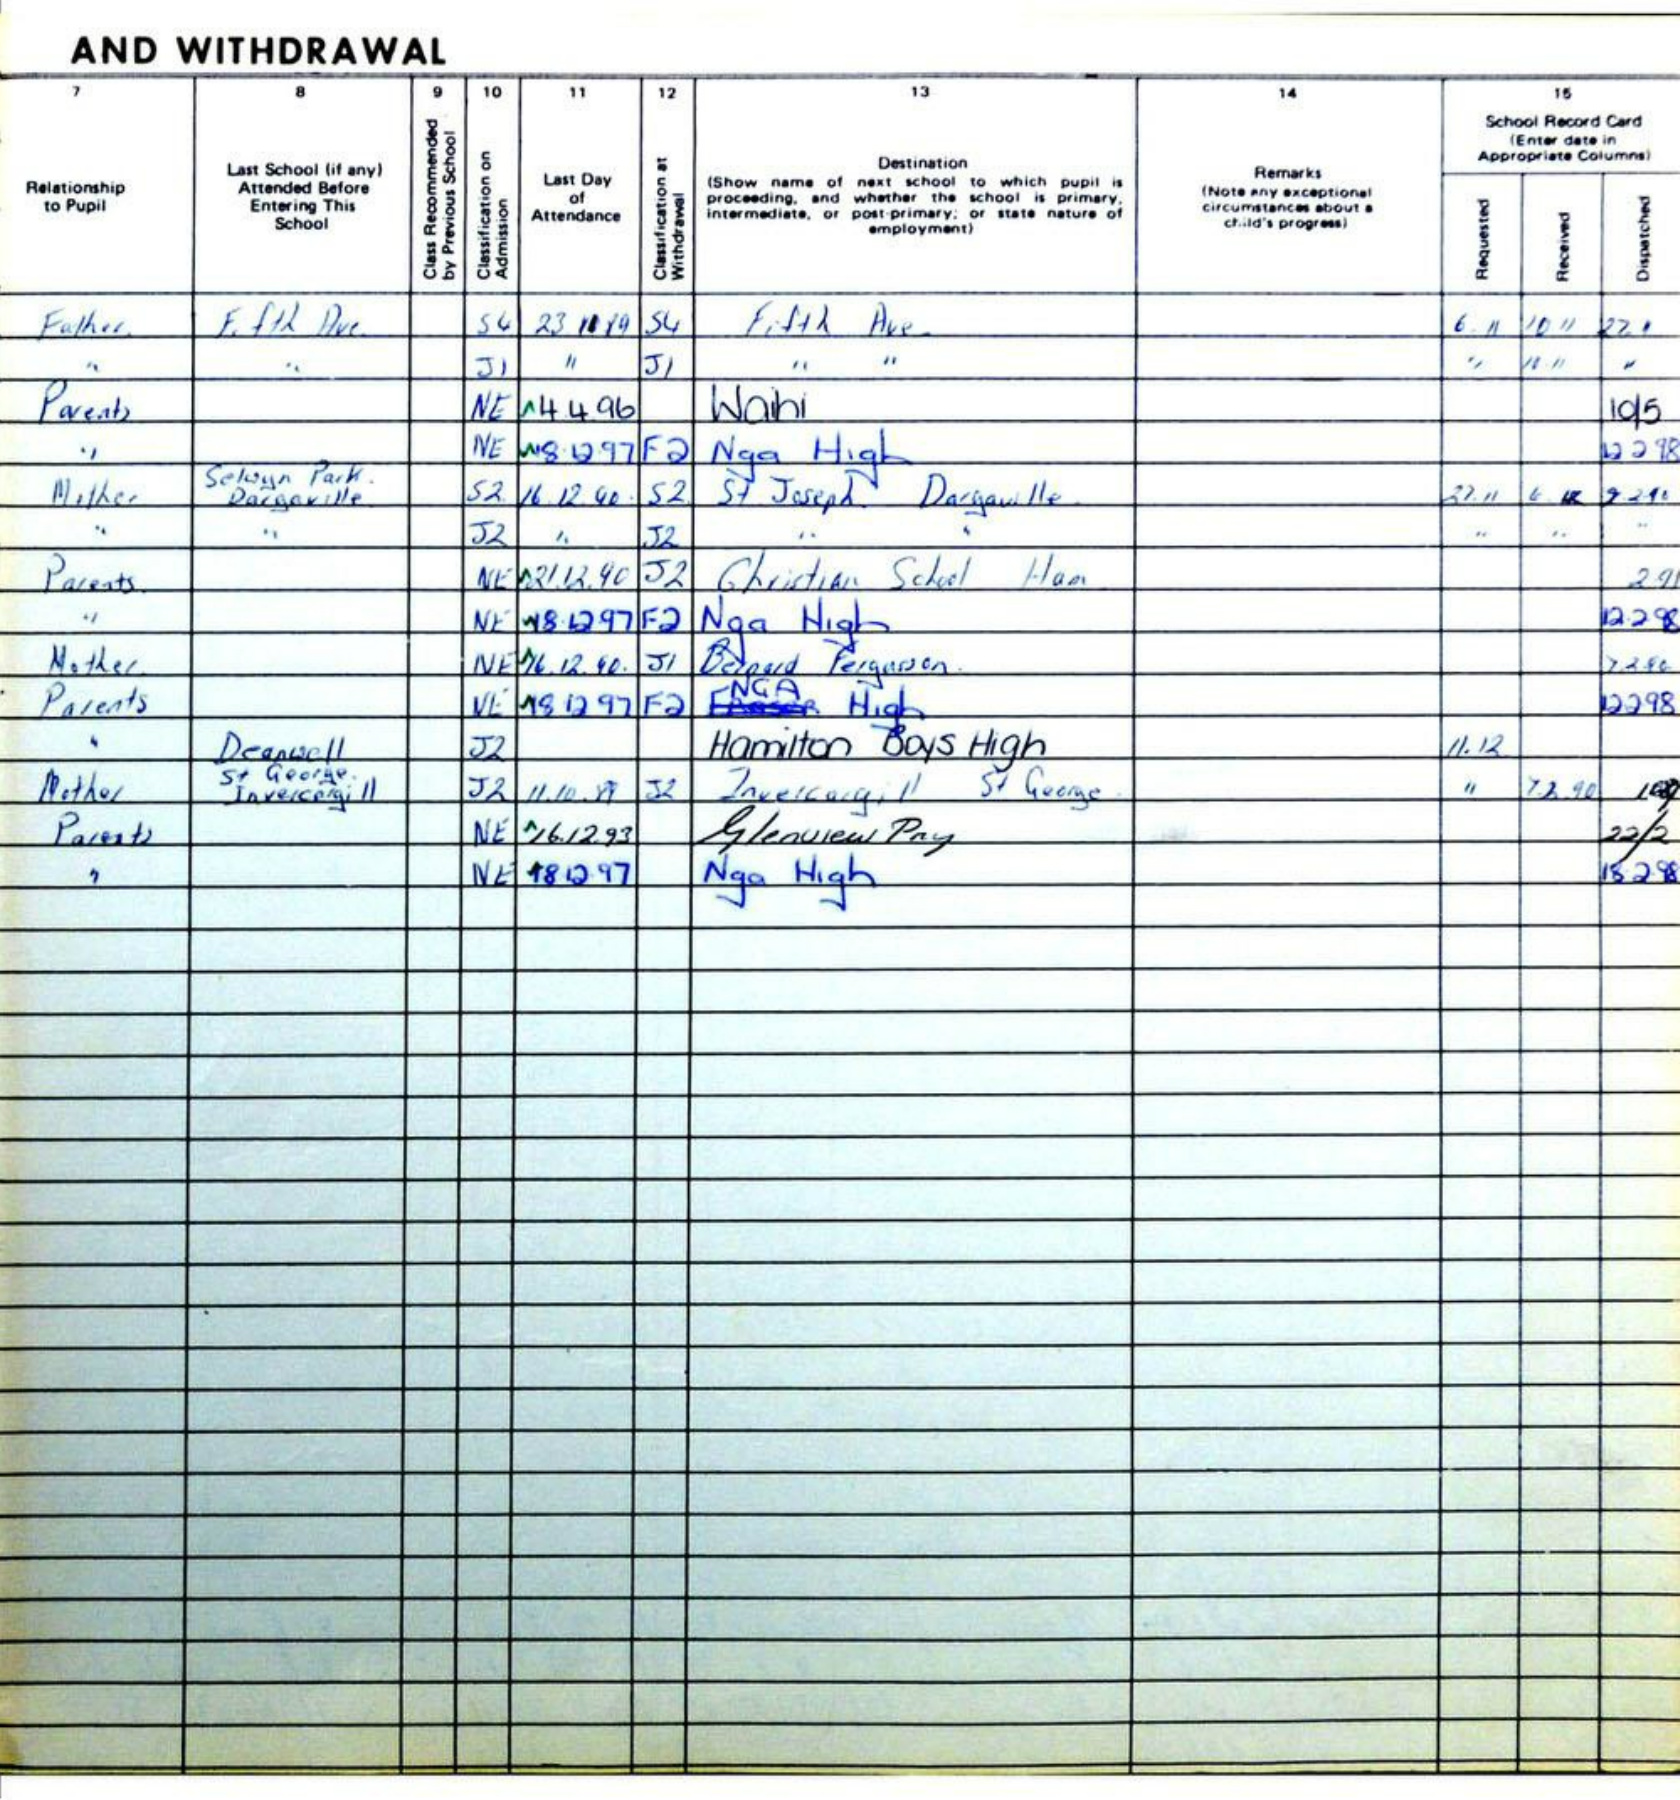 AND WITHDRAWAL
7 8 9 10 11 12 13 14 15
Relationship
to Pupil
Last School (if any)
Attended Before
Entering This
School
Class Recommended
by Previous School
Classification on
Admission
Last Day
of
Attendance
Classification at
Withdrawal
Destination
(Show name of next school to which pupil is
proceeding, and whether the school is primary,
intermediate, or post-primary; or state nature of
employment)
Remarks
(Note any exceptional
circumstances about a
child's progress)
School Record Card
(Enter date in
Appropriate Columns)
Requested
Received
Dispatched
Father Fifth Ave. S4 23 11 89 S4 Fifth Ave. 6. 11 10 11 27.
" " J1 " J1 " " " 10.11 "
Parents NE 4 4 96 Waihi 10/5
" NE 18.12.97 F2 Nga High 12 2 98
Mother Selwyn Park. Dargaville S2 16.12.90. S2 St Joseph Dargaville 27.11
" " J2 " J2 " " " " "
Parents NE 21.12.90 J2 Christian School Ham 2.91
" NE 18.12 97 F2 Nga High 12.2.98
Mother NE 16.12.90. J1 Bernard Fergusson.
Parents NE 18 12 97 F2 NGA High 12 2 98
" Deanwell J2 Hamilton Boys High 11.12
Mother St George. Invercargill J2 11.10.89 J2 Invercargill St George. " 7.2.90
Parents NE 16.12.93 Glenview Pry 22/2
" NE 18 12 97 Nga High 15 2 98